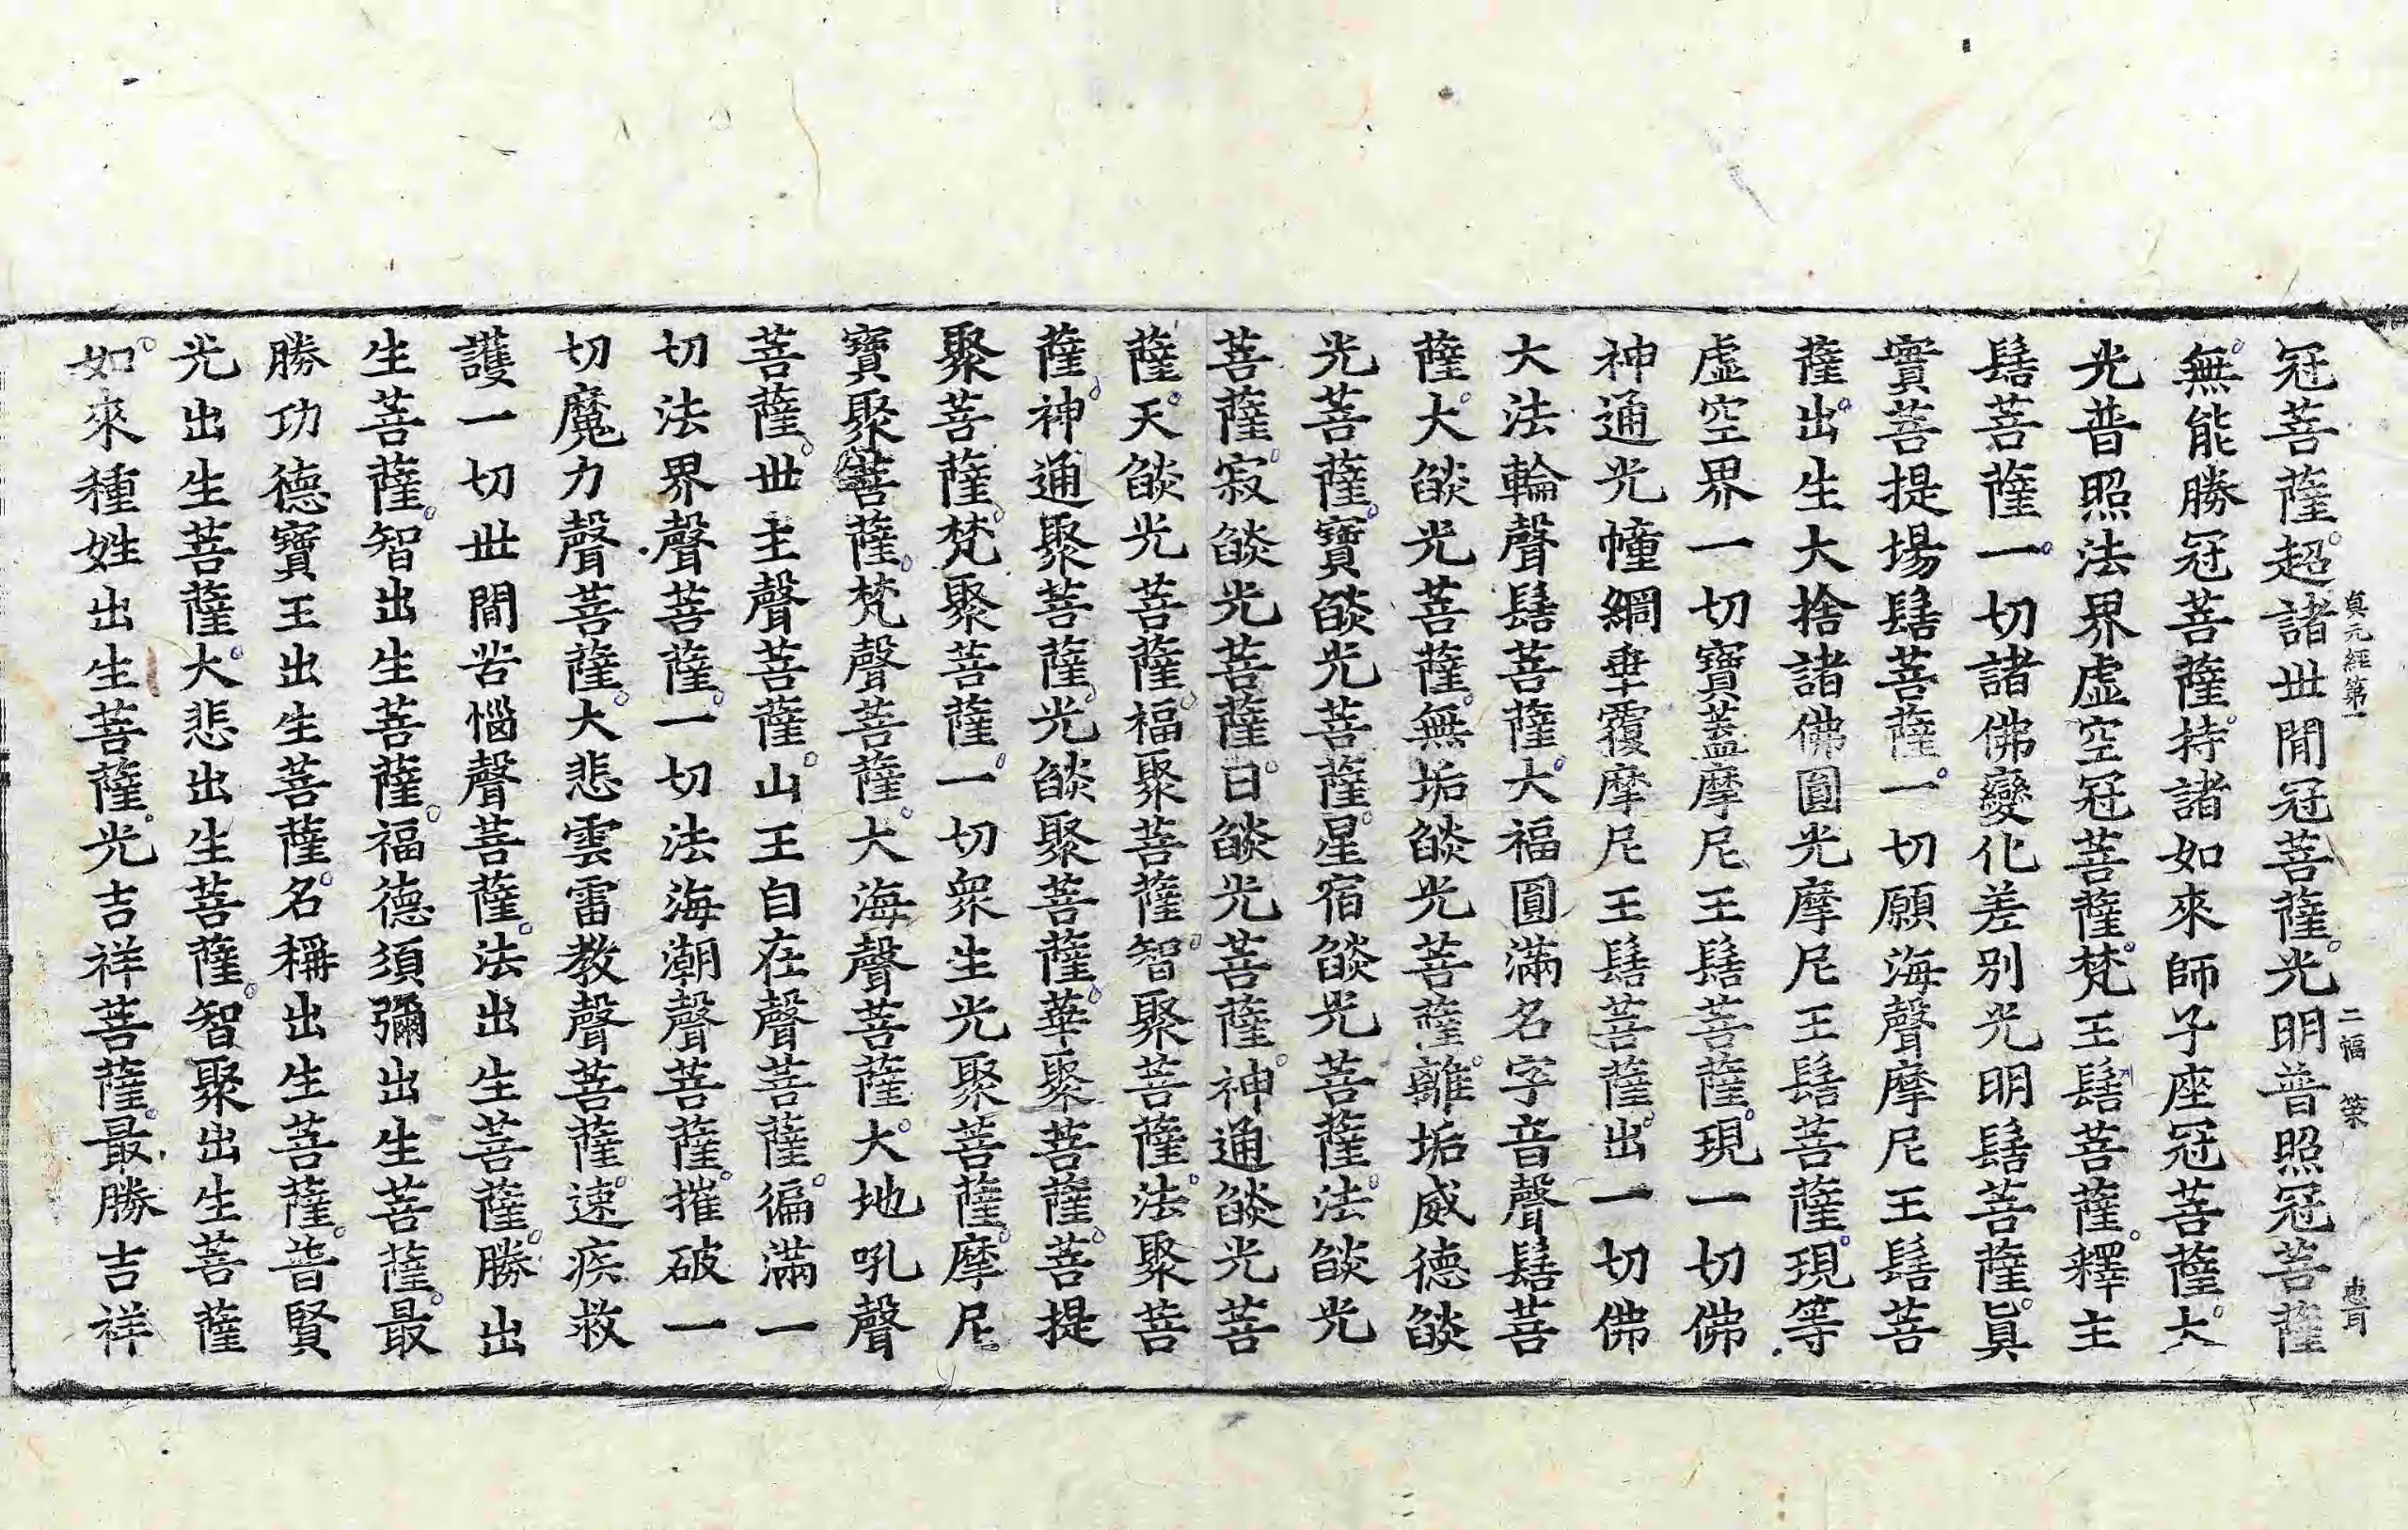 貞元經第一 二幅 策
冠菩薩超諸世間冠菩薩光明普照冠菩薩
無能勝冠菩薩持諸如來師子座冠菩薩大
光普照法界虛空冠菩薩梵王髻菩薩釋主
髻菩薩一切諸佛變化差別光明髻菩薩眞
實菩提場髻菩薩一切願海聲摩尼王髻菩
薩出生大捨諸佛圓光摩尼王髻菩薩現等
虛空界一切寶蓋摩尼王髻菩薩現一切佛
神通光幢網垂覆摩尼王髻菩薩出一切佛
大法輪聲髻菩薩大福圓滿名字音聲髻菩
薩大燄光菩薩無垢燄光菩薩離垢威德燄
光菩薩寶燄光菩薩星宿燄光菩薩法燄光
菩薩寂燄光菩薩日燄光菩薩神通燄光菩
薩天燄光菩薩福聚菩薩智聚菩薩法聚菩
薩神通聚菩薩光燄聚菩薩華聚菩薩菩提
聚菩薩梵聚菩薩一切衆生光聚菩薩摩尼
寶聚菩薩梵聲菩薩大海聲菩薩大地吼聲
菩薩世主聲菩薩山王自在聲菩薩徧滿一
切法界聲菩薩一切法海潮聲菩薩摧破一
切魔力聲菩薩大悲雲雷教聲菩薩速疾救
護一切世間苦惱聲菩薩法出生菩薩勝出
生菩薩智出生菩薩福德須彌出生菩薩最
勝功德寶王出生菩薩名稱出生菩薩普賢
光出生菩薩大悲出生菩薩智聚出生菩薩
如來種姓出生菩薩光吉祥菩薩最勝吉祥